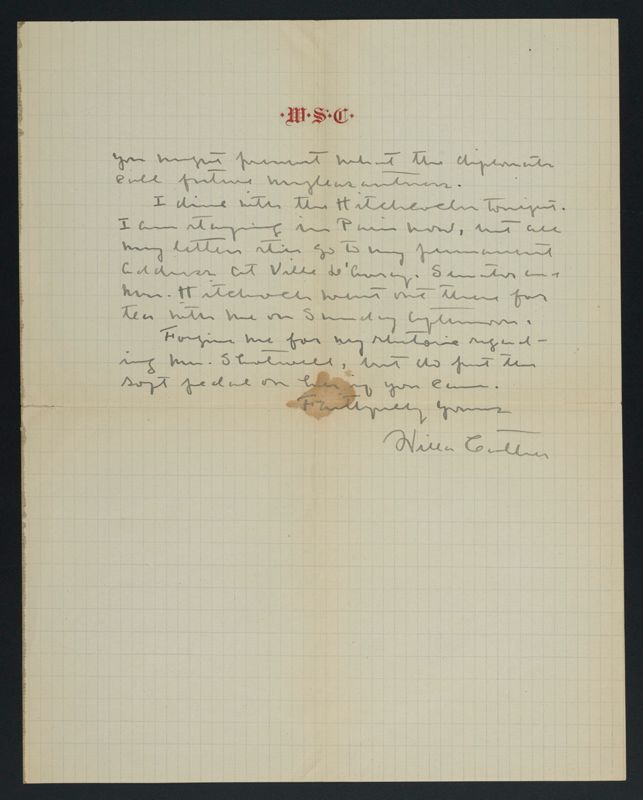 ·W·S·C·
you might prevent what the diplomats
call future unpleasantness.
I dine with the Hitchcocks tonight.
I am staying in Paris now, but all
my letters still go to my permanent
address at Ville d'Avray. Senator and
Mrs. Hitchcock went out there for
tea with me on Sunday afternoon.
Forgive me for my rhetoric regard-
ing Mr. Shotwell, but do put the
soft pedal on him if you can.
Faithfully yours
Willa Cather